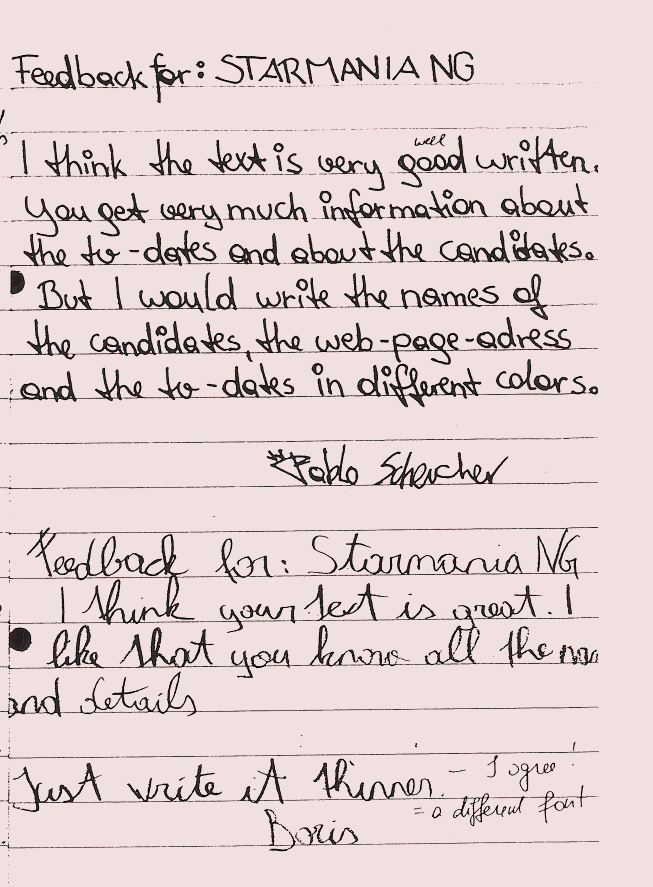 Feedback for: STARMANIA NG
well
I think the text is very good written.
You get very much information about
the tv-dates and about the candidates.
But I would write the names of
the candidates, the web-page-adress
and the tv-dates in different colors.
Pablo
Feedback for: Starmania NG
I think your text is great. I
like that you know all the
and details
Just write it thinner. – I agree!
= a different font
Boris